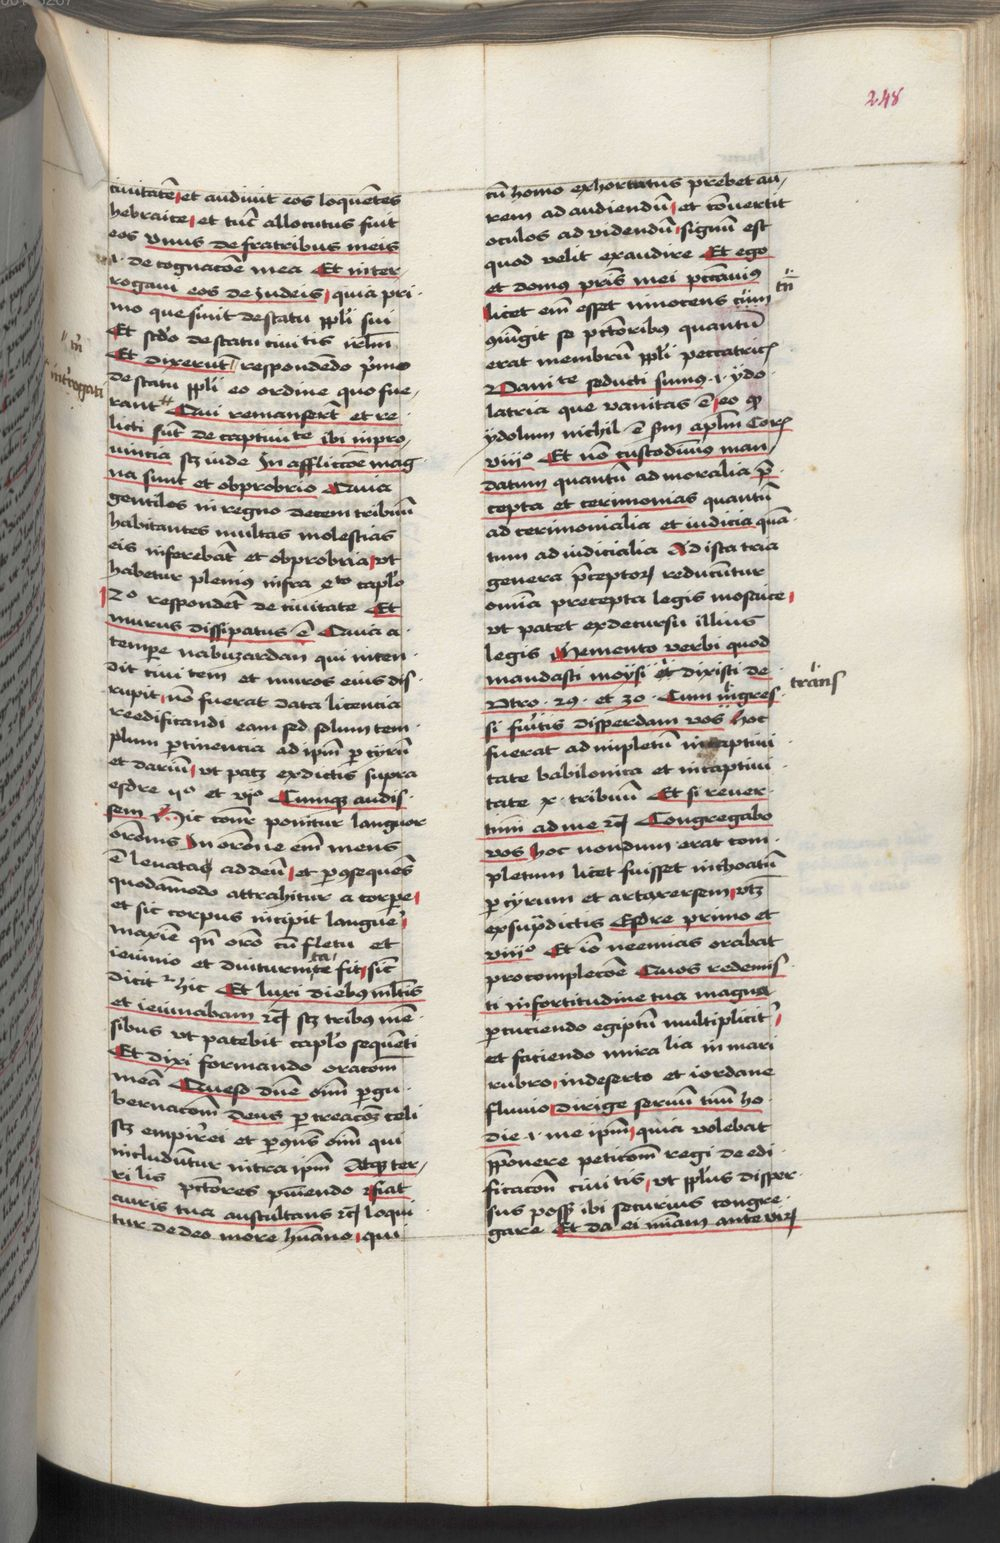 248
ciuitatē et audiuit eos loquētes
hebraice et tūc allocutus fuit
eos vnus de fratribus meis
.i. de cognacōe mea Et inter-
rogaui eos de Iudeis quia pri-
mo quesiuit de statu ppli sui
Et scdo de statu ciuitis irlm
Et dixerūt respondēdo p̄mo
de statu ppli eo ordine quo fue-
rant Qui remanserūt et re-
licti sūt de captiuite ibi in pro-
uincia scz iude In afflictōe mag-
na sunt et obprobrio Quia
gentiles in regno decem tribuū
habitantes multas molestias
eis inferebāt et obprobria vt
habetur plenius infra eto caplo
2o respondet de ciuitate Et
murus dissipatus ē Quia a
tempe nabuzardan qui incen-
dit ciuitem et muros eius dis-
rupit non fuerat data licencia
reedificandi eam sed solum tem-
plum ptinencia ad ipm p cyrū
et dariū vt patz ex dictis supra
esdre iio et vio Cumq audis-
sem Hic cōnr ponitur languor
orōnis In orōne em mens
ē leuata ad deū et p ɔsequēs
quodāmodo attrahitur a corpe
et sic corpus incipit langue
maxīe qn orō cū fletu et
ieiunio et diuturnite fit sic
ta
dicit hic Et luxi diebus mltis
et ieiunabam rc scz tribus mē-
sibus vt patebit caplo sequēti
Et dixi formando oracōm
meā Queso dn̄e oīm p gu-
bernacōm deus p creacōz celi
scz empirei et p ɔn̄s oīm qui
includūtur intra ipm Atq ter-
ri lis pctores pūiendo fiat
auris tua auscultans rc loqui-
tur de deo more hūano qui
m̄
interrogati
cū homo exhortatus prebet au-
rem ad audiendū et cōuertit
oculos ad videndū signū est
quod velit exaudire Et ego
et domus pris mei pccauim9
licet em esset innocens cūm
ɔiūgit se pctoribus quantū
erat membrū ppli peccatricis
Vanite seducti sumus .i. ydo-
latria que vanitas ē eo qp
ydolum nichil ē scm aplm Cor
viiio Et nō custodiuimus man-
datum quantū ad moralia p̄-
cepta et cerimonias quantū
ad cerimonialia et iudicia quā-
tum ad iudicialia Ad ista tria
genera p̄ceptor reducūtur
omīa precepta legis mosaice
vt patet ex decursu illius
legis Memento verbi quod
mandasti moysi et dixisti de
vtro 29 et 30 Cum īgres-
si fuītis disperdam vos hoc
fuerat adimpletū in captiui-
tate babilonica et in captiui-
tate x tribuū Et si reuer-
timi ad me rc Congregabo
vos hoc nondum erat com-
pletum licet fuisset inchoatū
p cyrum et artaxersem vtz
ex supdictis Esdre primo et
viiio Et iō neemias orabat
pro complecōe Quos redemis-
ti in fortitudine tua magna
pcuciendo egiptū multiplicit
et faciendo miralia in mari
rubro in deserto et iordane
fluuio Dirige seruū tuū ho-
die .i. me ipm quia volebat
pponere peticōm regi de edi-
ficacōn ciuitis vt pplus disper-
sus poss ibi securius congre-
gare Et da ei mīam ante vir
tn̄
trāns